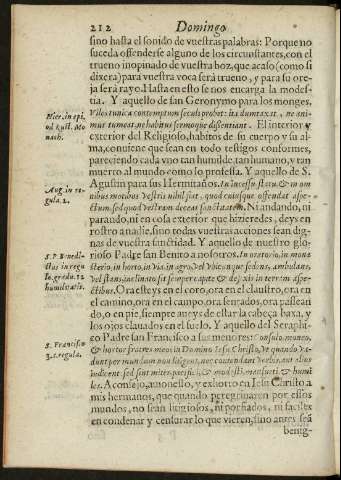 212 Domingo
sino hasta el sonido de vuestras palabras: Porque no
suceda ofenderse alguno de los circunstantes, con el
trueno inopinado de vuestra boz, que acaso (como si
dixera) para vuestra voca será trueno, y para su ore-
ja será rayo. Hasta en esto se nos encarga la modes-
tia. Y aquello de san Geronymo para los monges,
Viles tunica contemptum seculi probet: ita dumtaxat, ne ani-
mus tumeat, ne habitus sermoque dissentiant. El interior y
exterior del Religioso, habitos de su cuerpo y su al-
ma, conuiene que sean en todo testigos conformes,
pareciendo cada vno tan humilde, tan humano, y tan
muerto al mundo como lo professa. Y aquello de S.
Agustin para sus Hermitaños. In incessu statu, & in om
nibus motibus vestris nihil fiat, quod cuiusque offendat aspe-
ctum, sed quod vestram deceat sanctitatem. Ni andando, ni
parando, ni en cosa exterior que hizieredes, deys en
rostro a nadie, sino todas vuestras acciones sean dig-
nas de vuestra sanctidad. Y aquello de nuestro glo-
rioso Padre san Benito a nosotros. In oratorio, in mona
sterio, in horto, in via, in agro, vel vbicunque sedens, ambulans,
vel stans, inclinato sit semper capite & defixis in terram aspe-
ctibus. Ora esteys en el coro, ora en el claustro, ora en
el camino, ora en el campo, ora sentados, ora pasean
do, o en pie, siempre aueys de estar la cabeça baxa, y
los ojos clauados en el suelo. Y aquello del Seraphi-
co Padre san Francisco a sus menores: Consulo, moneo,
& hortor fratres meos in Domino Iesu Christo, vt quando va-
dunt per mundum non litigent, nec contendant verbis, aut alios
iudicent: sed sint mites, pacifici, & modesti, mansueti & humi
les. Aconsejo, amonesto, y exhorto en Iesu Christo a
mis hermanos, que quando peregrinaren por essos
mundos, no sean litigiosos, ni porfiados, ni faciles
en condenar y censurar lo que vieren, sino antes seã
benig-
Hier. in epi.
ad Rust. Mo
nach.
Aug. in re-
gula. 2.
S. P. Benedi-
ctus in regu
la. gradu. 12
humilitatis.
S. Francisco
3. c. regula.